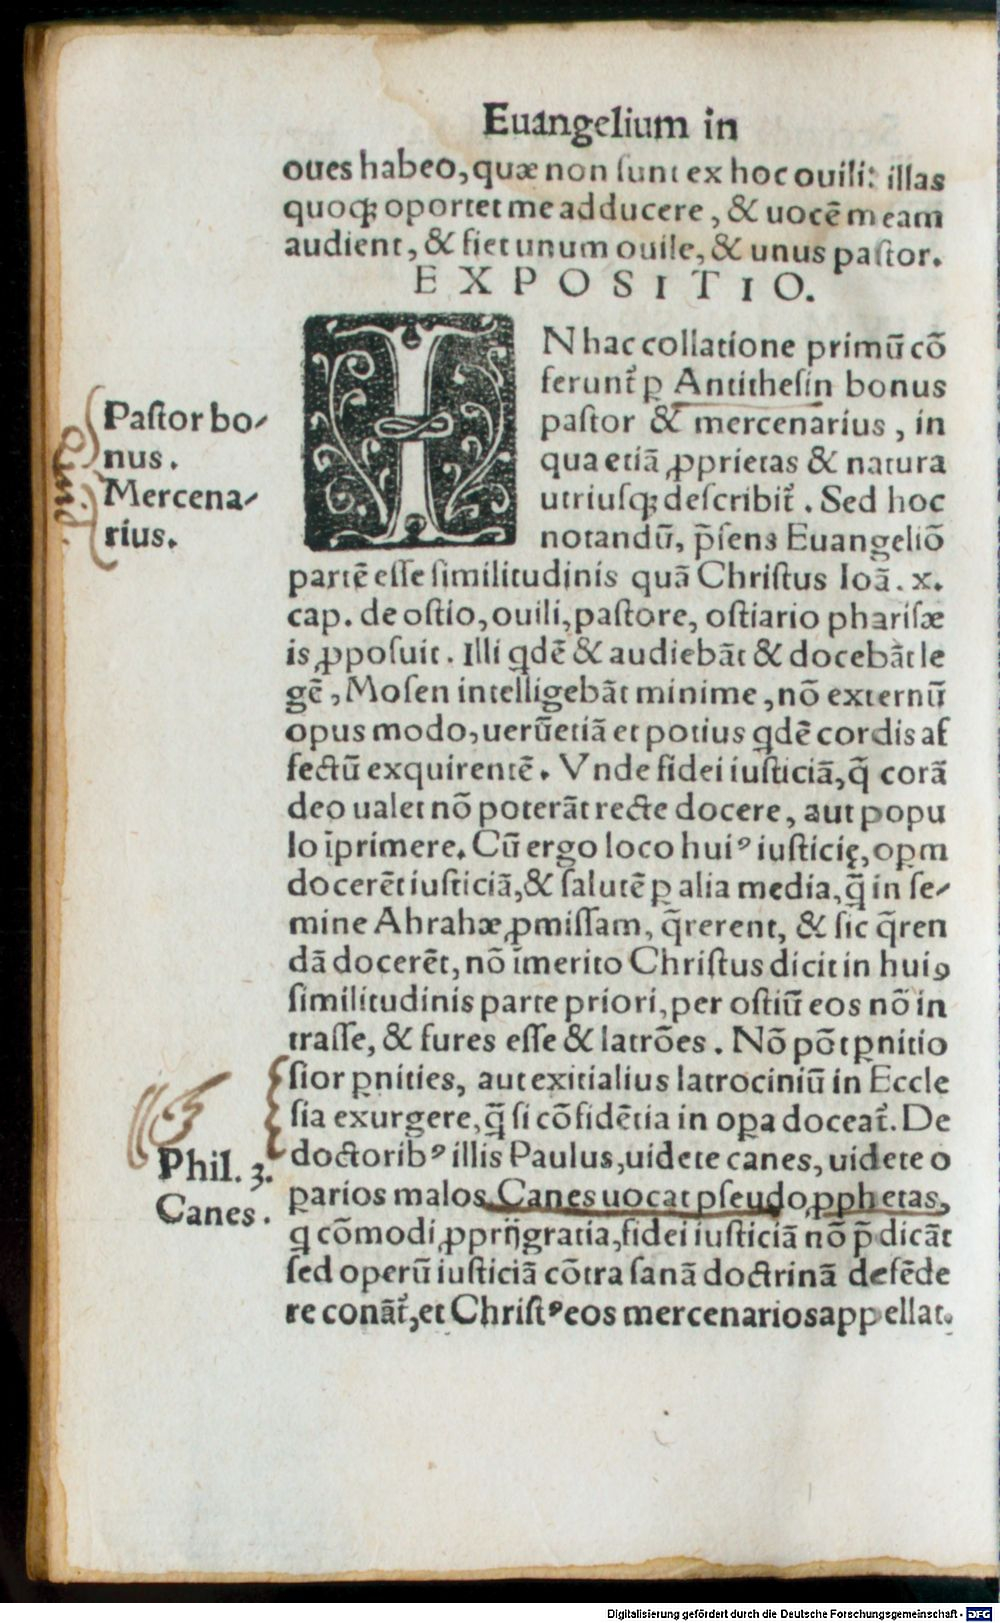 Euangelium in
oues habeo, quæ non sunt ex hoc ouili: illas
quoqꝫ oportet me adducere, & uocē meam
audient, & fiet unum ouile, & unus pastor.
EXPOSITIO.
IN hac collatione primū cō
ferunt᷑ ꝑ Antithesin bonus
pastor & mercenarius, in
qua etiā ꝓprietas & natura
utriusqꝫ describit᷑. Sed hoc
notandū, p̄sens Euangeliō
partē esse similitudinis quā Christus Ioā. x.
cap. de ostio, ouili, pastore, ostiario pharisæ
is ꝓposuit. Illi qdē & audiebāt & docebāt le
gē, Mosen intelligebāt minime, nō externū
opus modo, uerū etiā et potius qdē cordis af
fectū exquirentē. Vnde fidei iusticiā, q̄ corā
deo ualet nō poterāt recte docere, aut popu
lo īprimere. Cū ergo loco huiꝰ iusticię, oꝑm
docerēt iusticiā, & salutē ꝑ alia media, q̄ in se-
mine Abrahæ ꝓmissam, q̄rerent, & sic q̄ren
dā docerēt, nō īmerito Christus dicit in huiꝰ
similitudinis parte priori, per ostiū eos nō in
trasse, & fures esse & latrōes. Nō pōt ꝑnitio
sior ꝑnities, aut exitialius latrociniū in Eccle
sia exurgere, q̄ si cōfidētia in oꝑa doceat᷑. De
doctoribꝰ illis Paulus, uidete canes, uidete o
parios malos. Canes uocat pseudo ꝓphetas,
q cōmodi ꝓprij gratia, fidei iusticiā nō p̄dicāt
sed operū iusticiā cōtra sanā doctrinā defēde
re conāt᷑, et Christꝰ eos mercenarios appellat.
Pastor bo-
nus.
Mercena-
rius.
Phil. 3.
Canes.
Digitalisierung gefördert durch die Deutsche Forschungsgemeinschaft - DFG